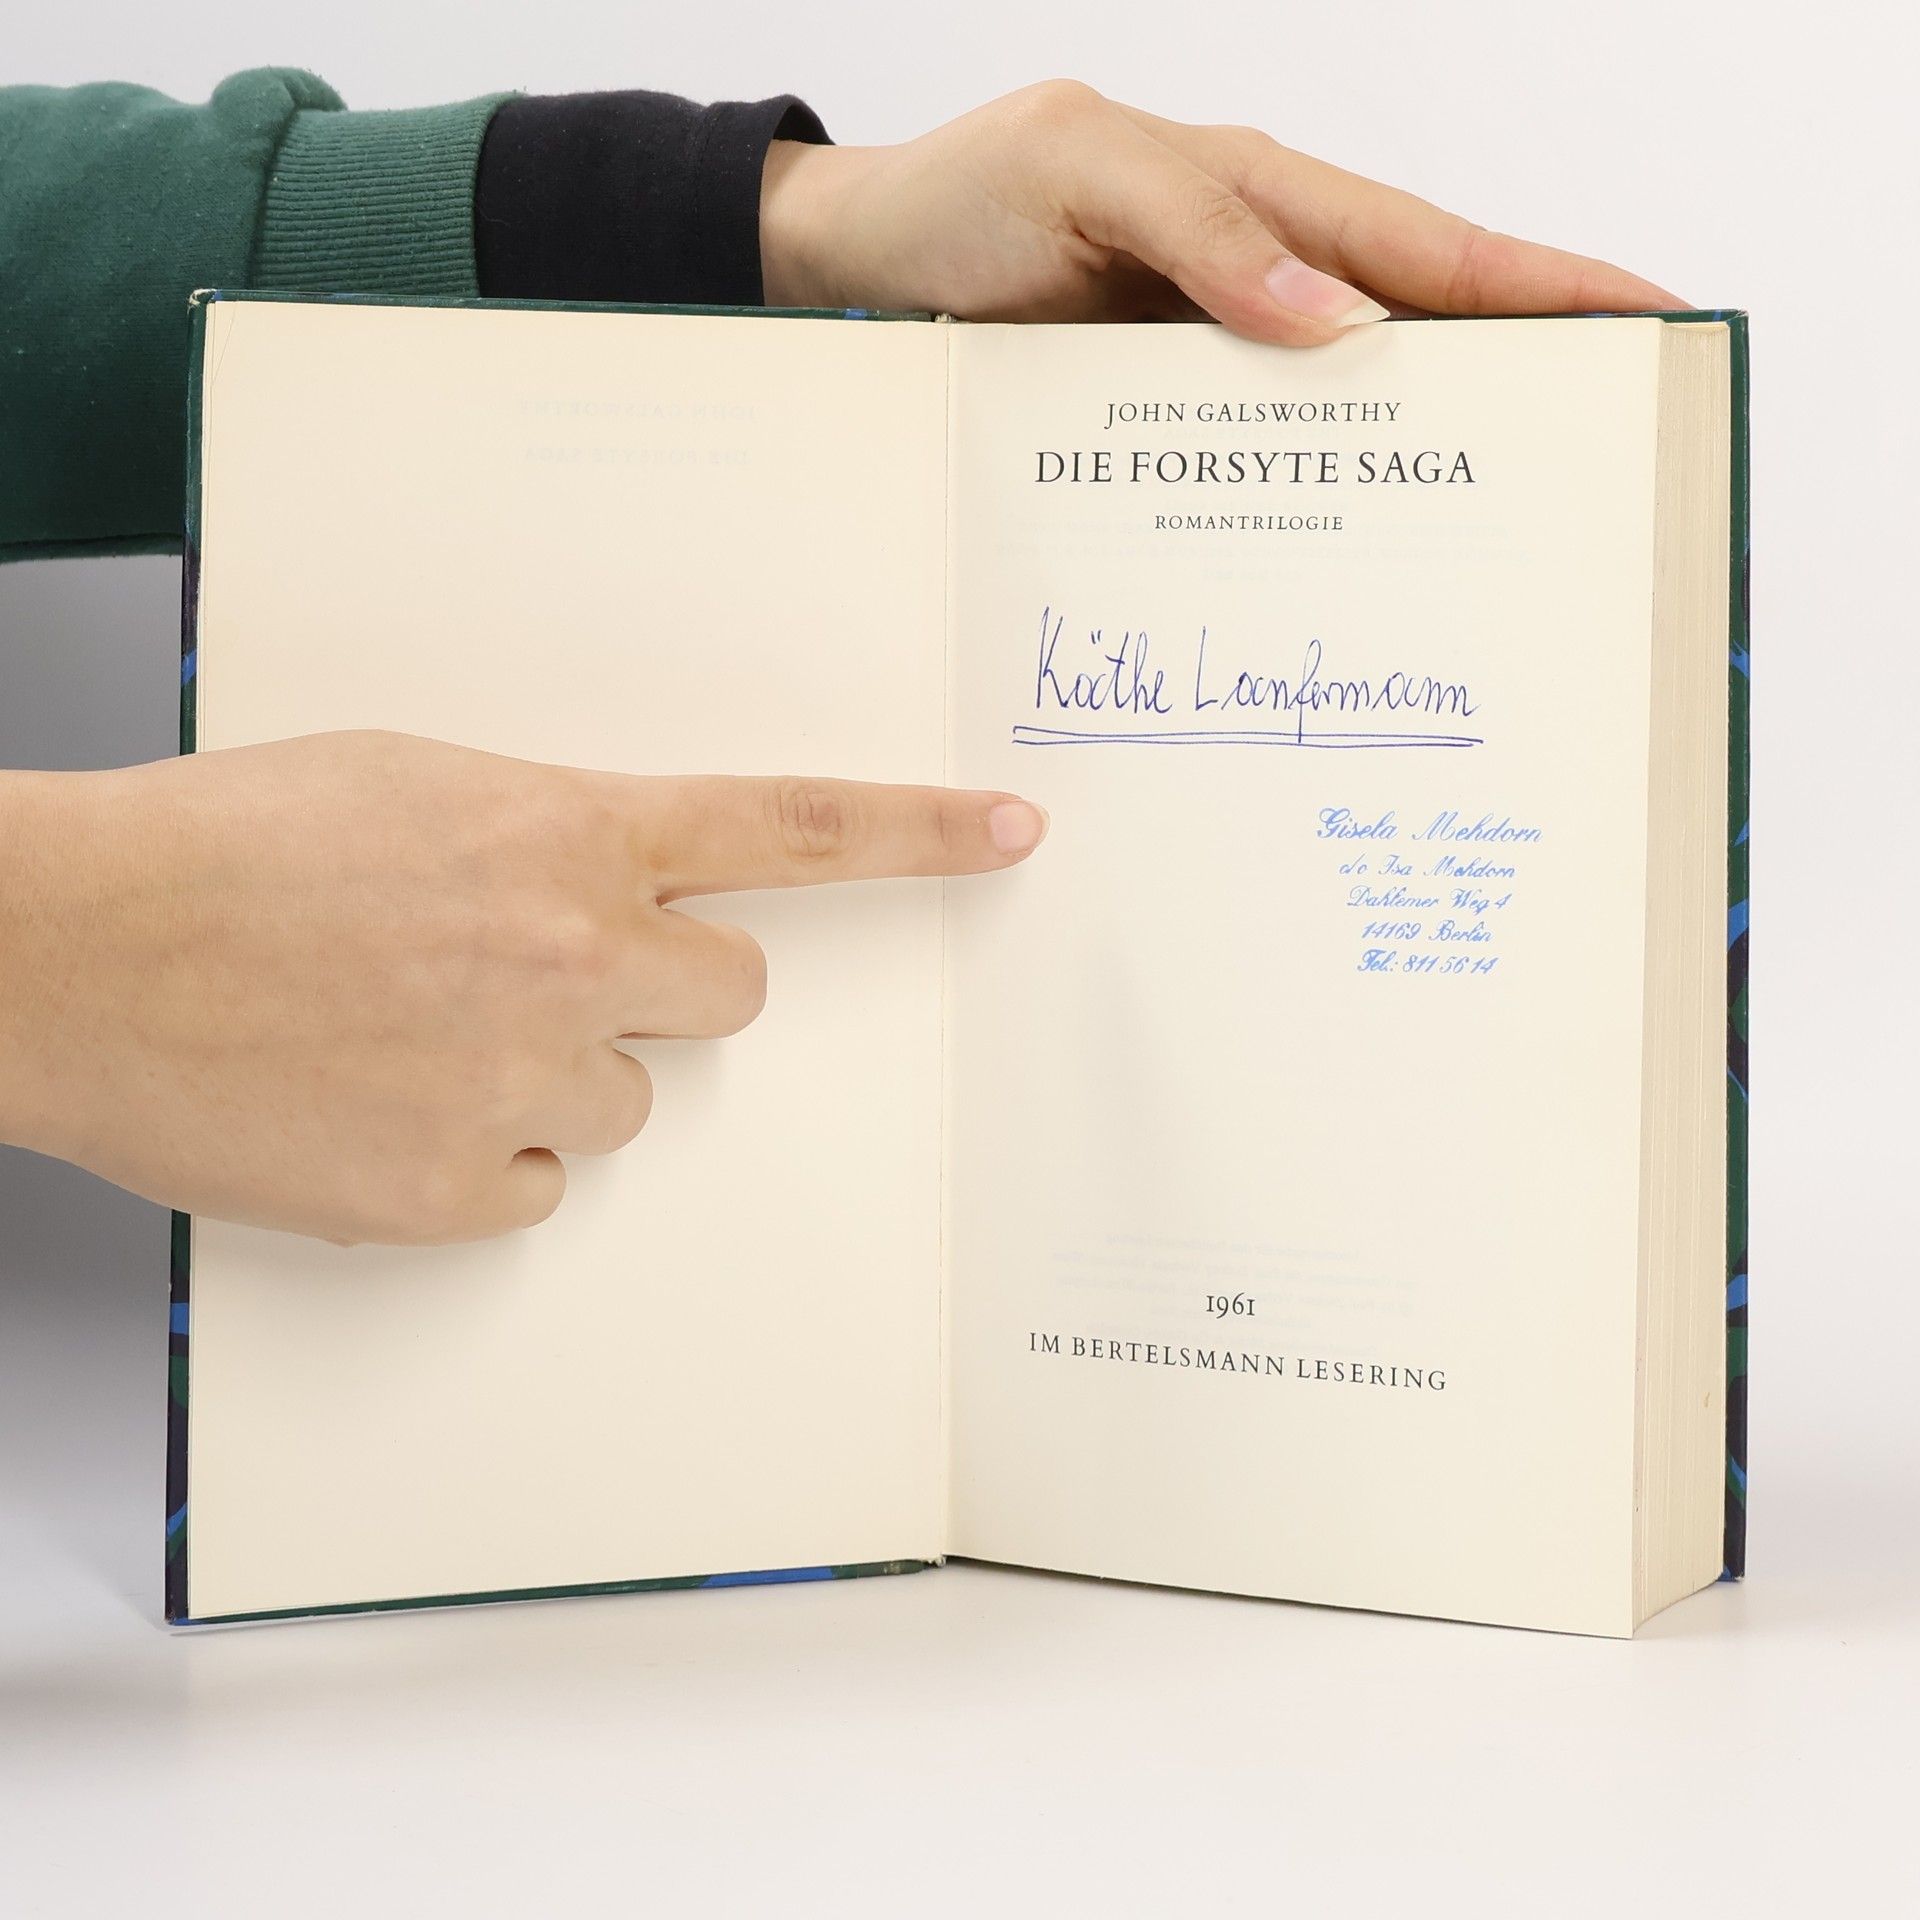 JOHN GALSWORTHY
DIE FORSYTE SAGA
ROMANTRILOGIE
Käthe Lanfermann
Gisela Mehdorn
c/o Isa Mehdorn
Dahlemer Weg 4
14169 Berlin
Tel.: 811 56 14
1961
IM BERTELSMANN LESERING